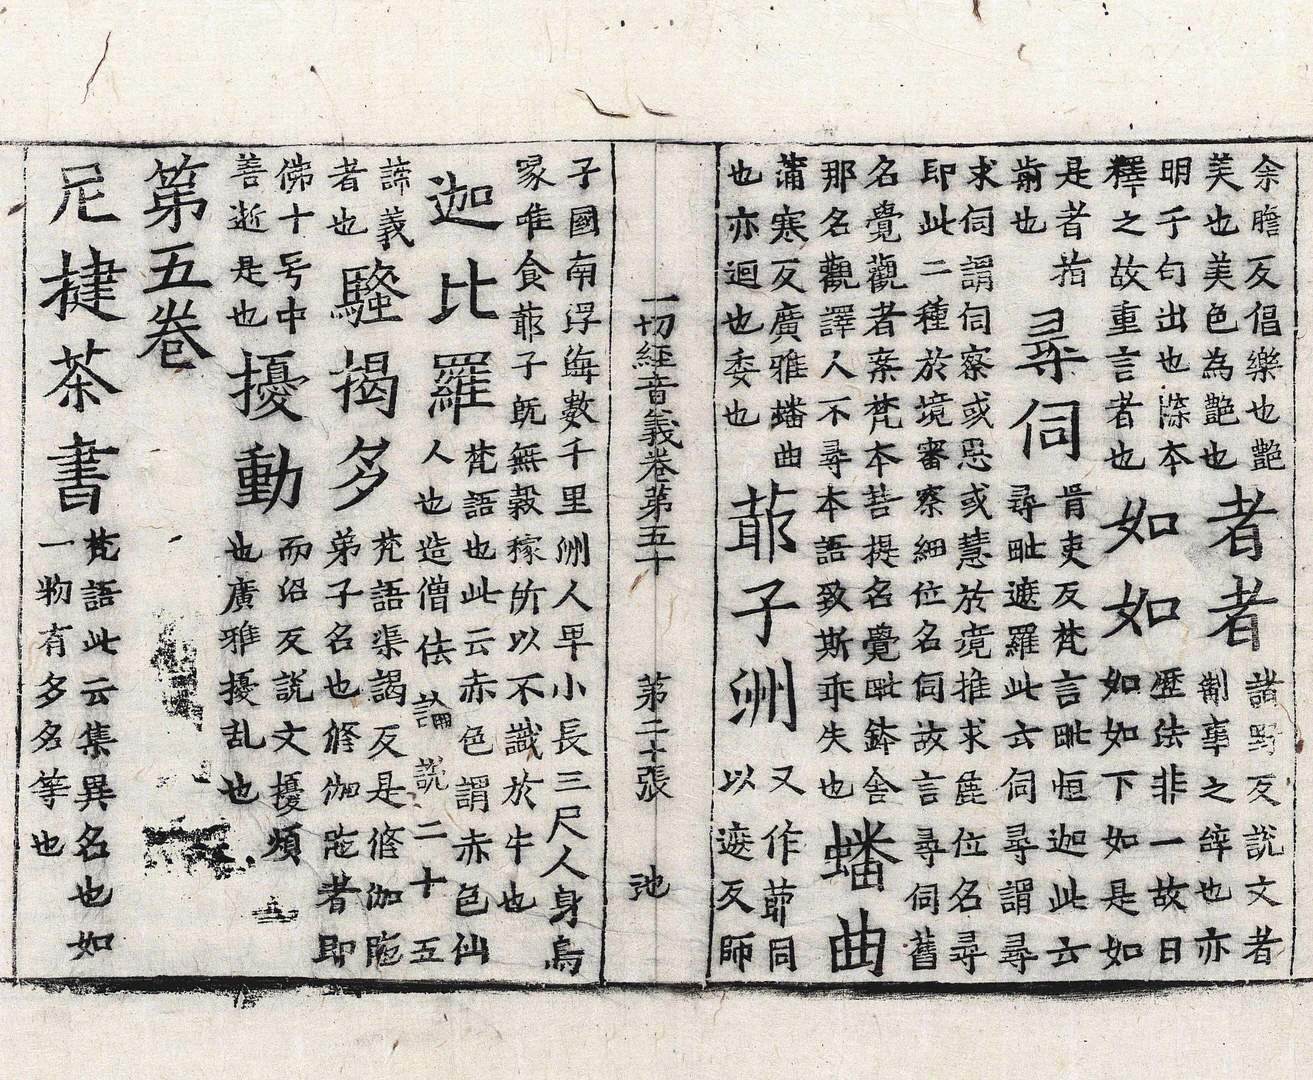 余瞻反倡樂也艶
美也美色為艶也
者者
諸野反說文者
剬事之辝也亦
明于句出也滌本
釋之故重言者也
如如
歷法非一故日
如如下如是如
是者指
歬也
尋伺
胥吏反梵言毗恒迦此云
尋毗遮羅此云伺尋謂尋
求伺謂伺察或思或慧於境推求麁位名尋
即此二種於境審察細位名伺故言尋伺舊
名覺觀者案梵本菩提名覺毗鉢舍
那名觀譯人不尋本語致斯乖失也
蟠曲
蒲寒反廣雅蟠曲
也亦迴也委也
䓉子洲
又作䓉同
以遮反師
一切經音義卷第五十 第二十張 池
子國南浮海數千里洲人卑小長三尺人身鳥
唯食䓉子旣無穀稼所以不識於牛也
迦比羅
梵語也此云赤色謂赤色仙
人也造僧佉論說二十五
諦義
者也
騷揭多
梵語渠謁反是修伽陁
弟子名也修伽陁者即
佛十号中
善逝是也
擾動
而沼反說文擾煩
也廣雅擾乱也
第五卷
尼揵荼書
梵語此云集異名也如
一物有多名等也